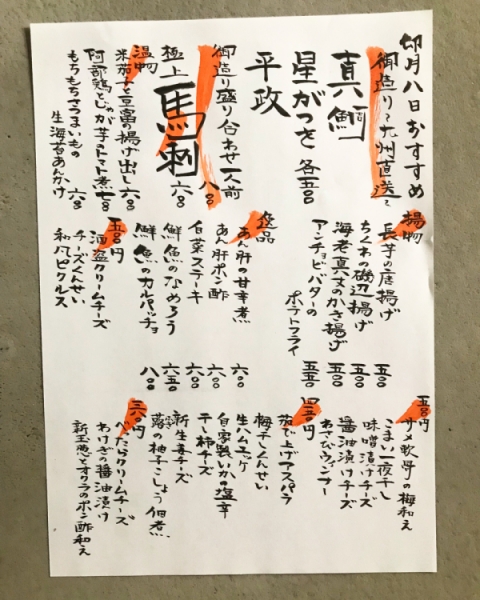 卯月八日おすすめ
御造り〜九州直送〜
真鯛
星がつを 各五.五〇
平政
御造り盛り合わせ一人前 一八〇〇
極上 馬刺 一六八〇
温物
米茄子と豆富の揚げ出し 六八〇
阿部鶏とじゃが芋のトマト煮 七八〇
もちもちさつまいもの
生海苔あんかけ 六八〇
揚物
長芋の唐揚げ 五五〇
ちくわの磯辺揚げ 五五〇
海老真丈のかき揚げ 五五〇
アンチョビバターの
ポテトフライ 五五〇
逸品
あん肝の甘辛煮 六八〇
あん肝ポン酢 六八〇
白菜ステーキ 六八〇
鮮魚のなめろう 六五〇
鮮魚のカルパッチョ 八八〇
五五〇円
酒盗クリームチーズ
チーズくんせい
和風ピクルス
五八〇円
サメ軟骨の梅和え
こまい一夜干し
味噌漬けチーズ
醤油漬けチーズ
わさびウィンナー
四五〇円
茹で上げアスパラ
梅干しくんせい
生ハムユッケ
自家製いかの塩辛
干し柿チーズ
新生姜チーズ
蕗の柚子こしょう佃煮
三八〇円
べったらクリームチーズ
わけぎの醤油漬け
新玉葱とオクラのポン酢和え